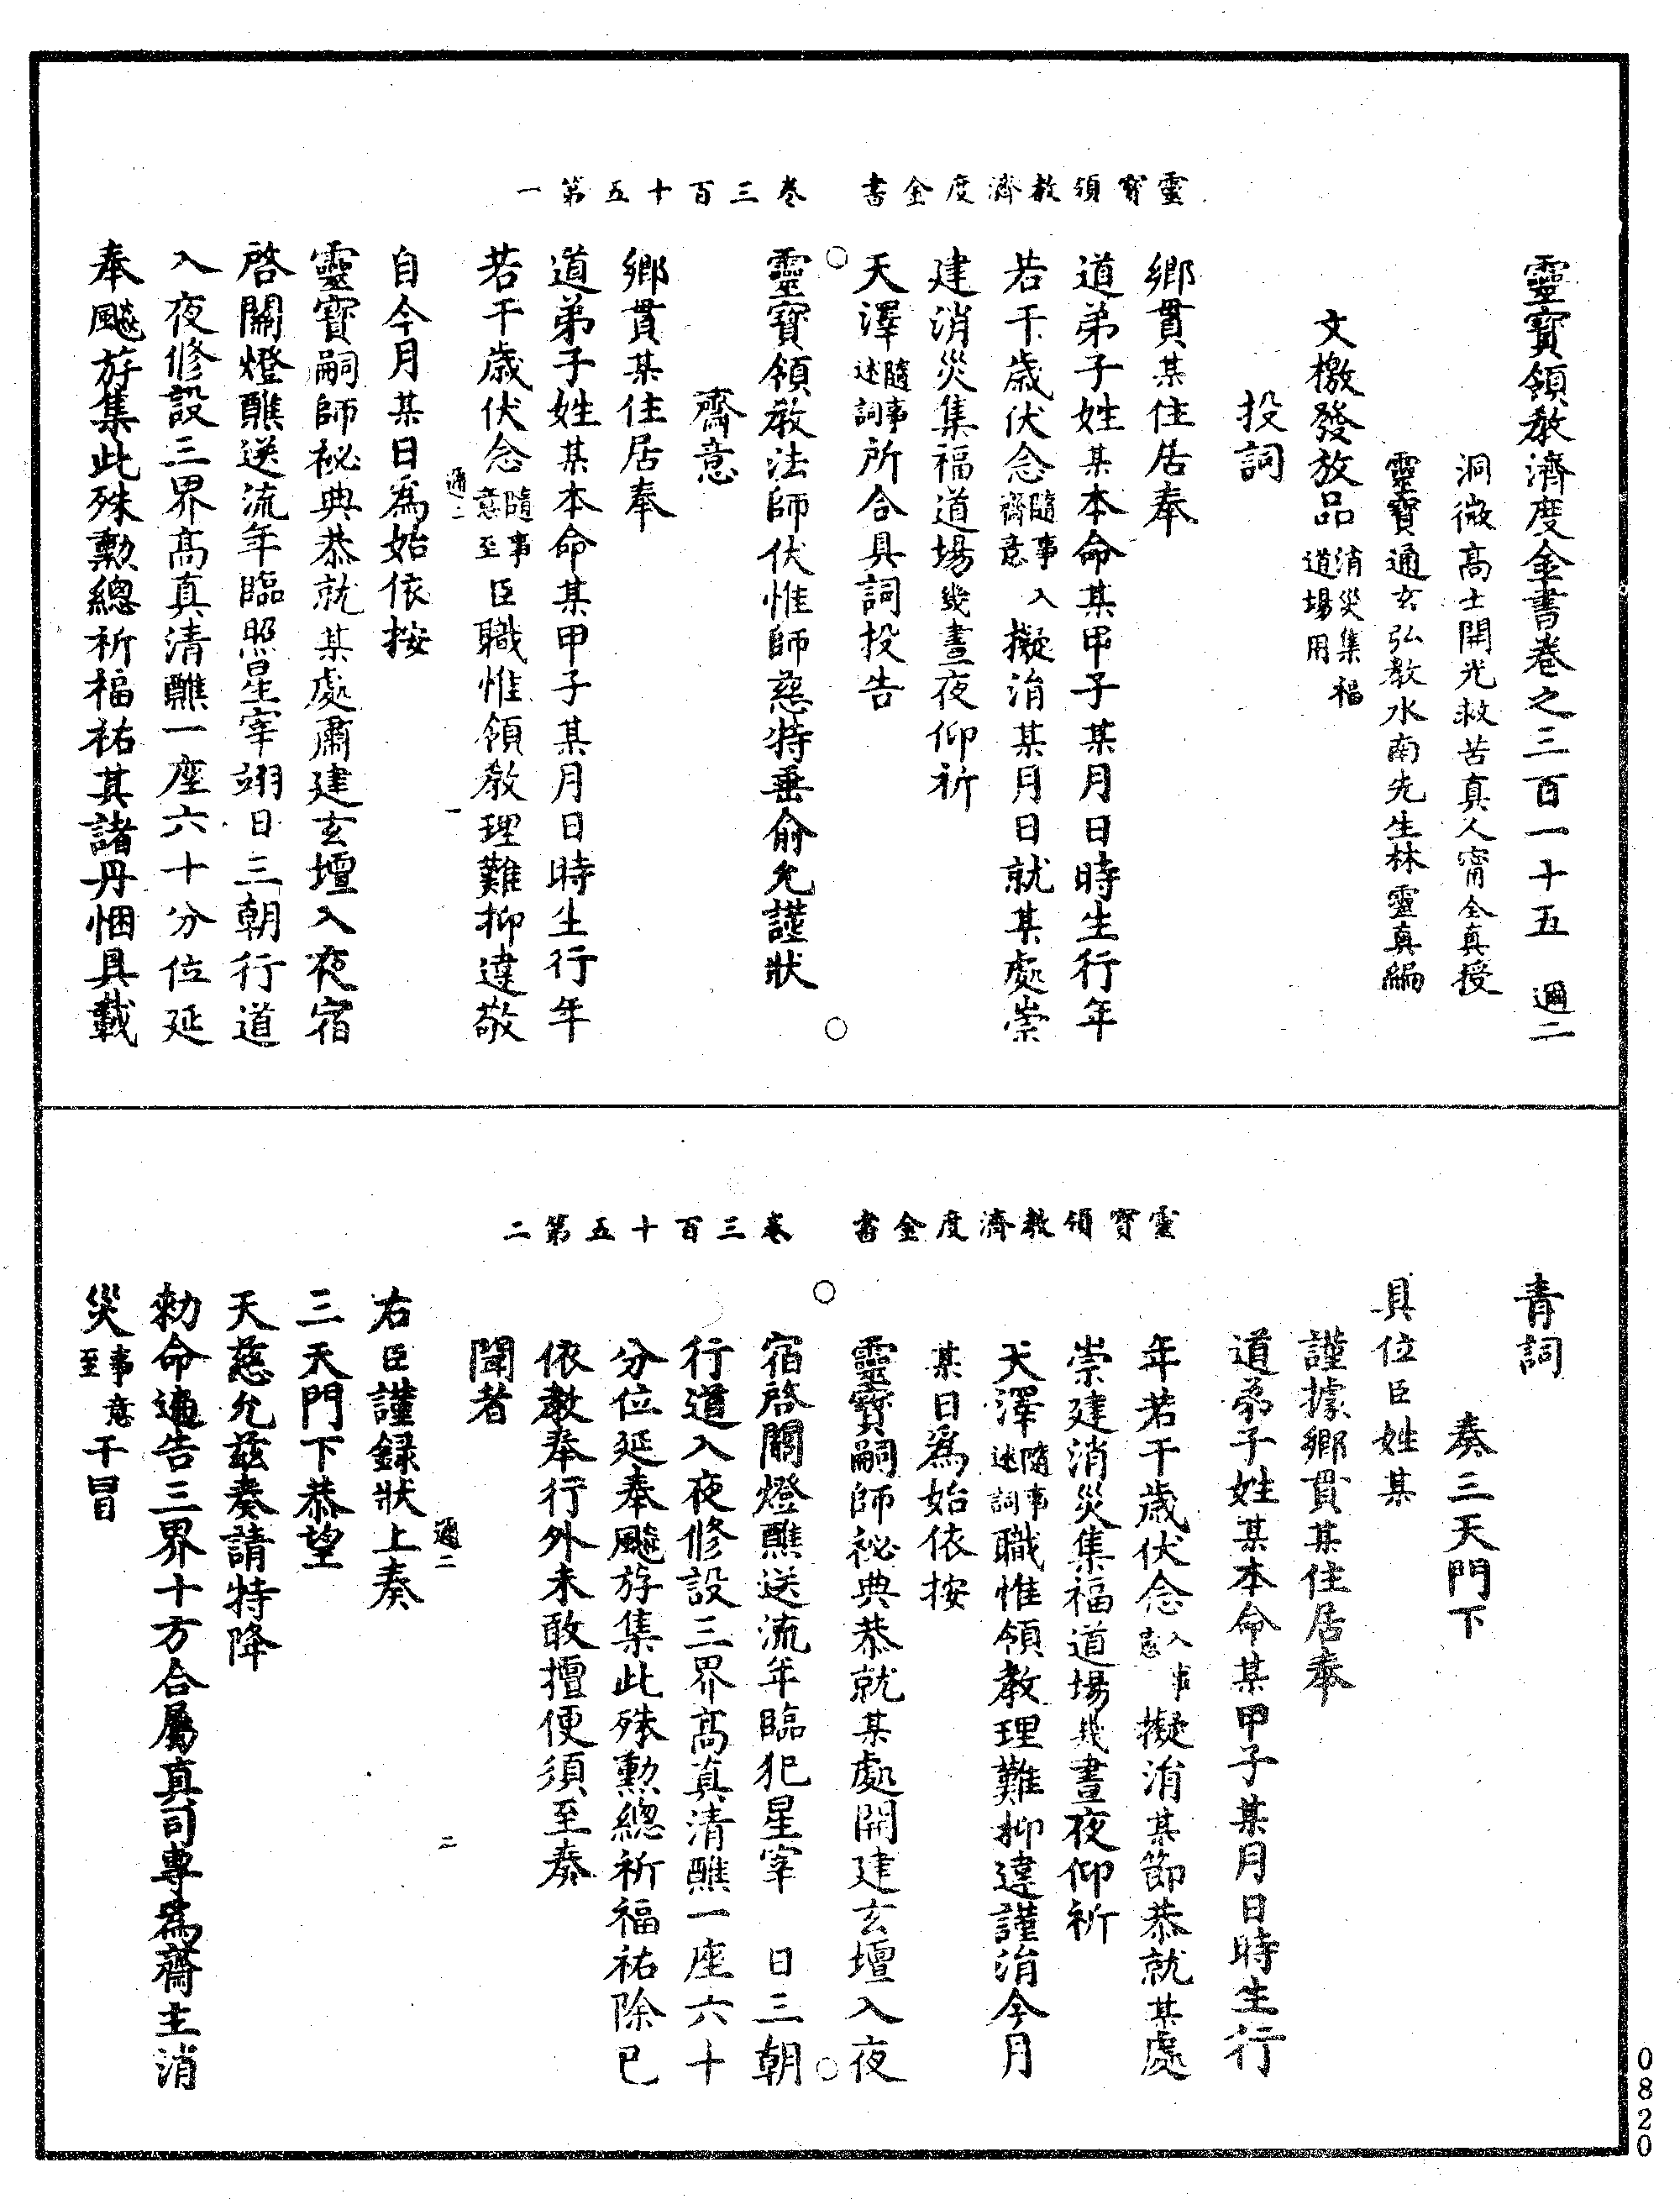 靈寶領教濟度金書　卷三百十五第一
靈寶領教濟度金書卷之三百一十五　通二
洞微高士開光救苦真人甯全真授
靈寶通玄弘教水南先生林靈真編
文檄發放品消災集福道場用
投詞
鄉貫某住居奉
道弟子姓某本命某甲子某月日時生行年
若干歲伏念隨事齋意入擬消某月日就某處崇
建消災集福道場幾晝夜仰祈
天澤隨事述詞所合具詞投告
靈寶領教法師伏惟師慈特垂俞允謹狀
齋意
鄉貫某住居奉
道弟子姓某本命某甲子某月日時生行年
若干歲伏念隨事意至臣職惟領教理難抑違敬
通二　一
自今月某日為始依按
靈寶嗣師祕典恭就某處肅建玄壇入夜宿
啓關燈醮送流年臨照星宰翊日三朝行道
入夜修設三界高真清醮一座六十分位延
奉飈斿集此殊勳總祈福祐其諸丹悃具載
靈寶領教濟度金書　卷三百十五第二
青詞
奏三天門下
具位臣姓某
謹據鄉貫某住居奉
道弟子姓某本命某甲子某月日時生行
年若干歲伏念入事意擬消某節恭就某處
崇建消災集福道場幾晝夜仰祈
天澤隨事述詞職惟領教理難抑違謹消今月
某日為始依按
靈寶嗣師祕典恭就某處開建玄壇入夜
宿啓關燈醮送流年臨犯星宰　日三朝
行道入夜修設三界高真清醮一座六十
分位延奉飈斿集此殊勳總祈福祐除已
依教奉行外未敢擅便須至奏
聞者
通二　二
右臣謹録狀上奏
三天門下恭望
天慈允兹奏請特降
勑命遍告三界十方合屬真司專為齋主消
災事意至干冒
0820